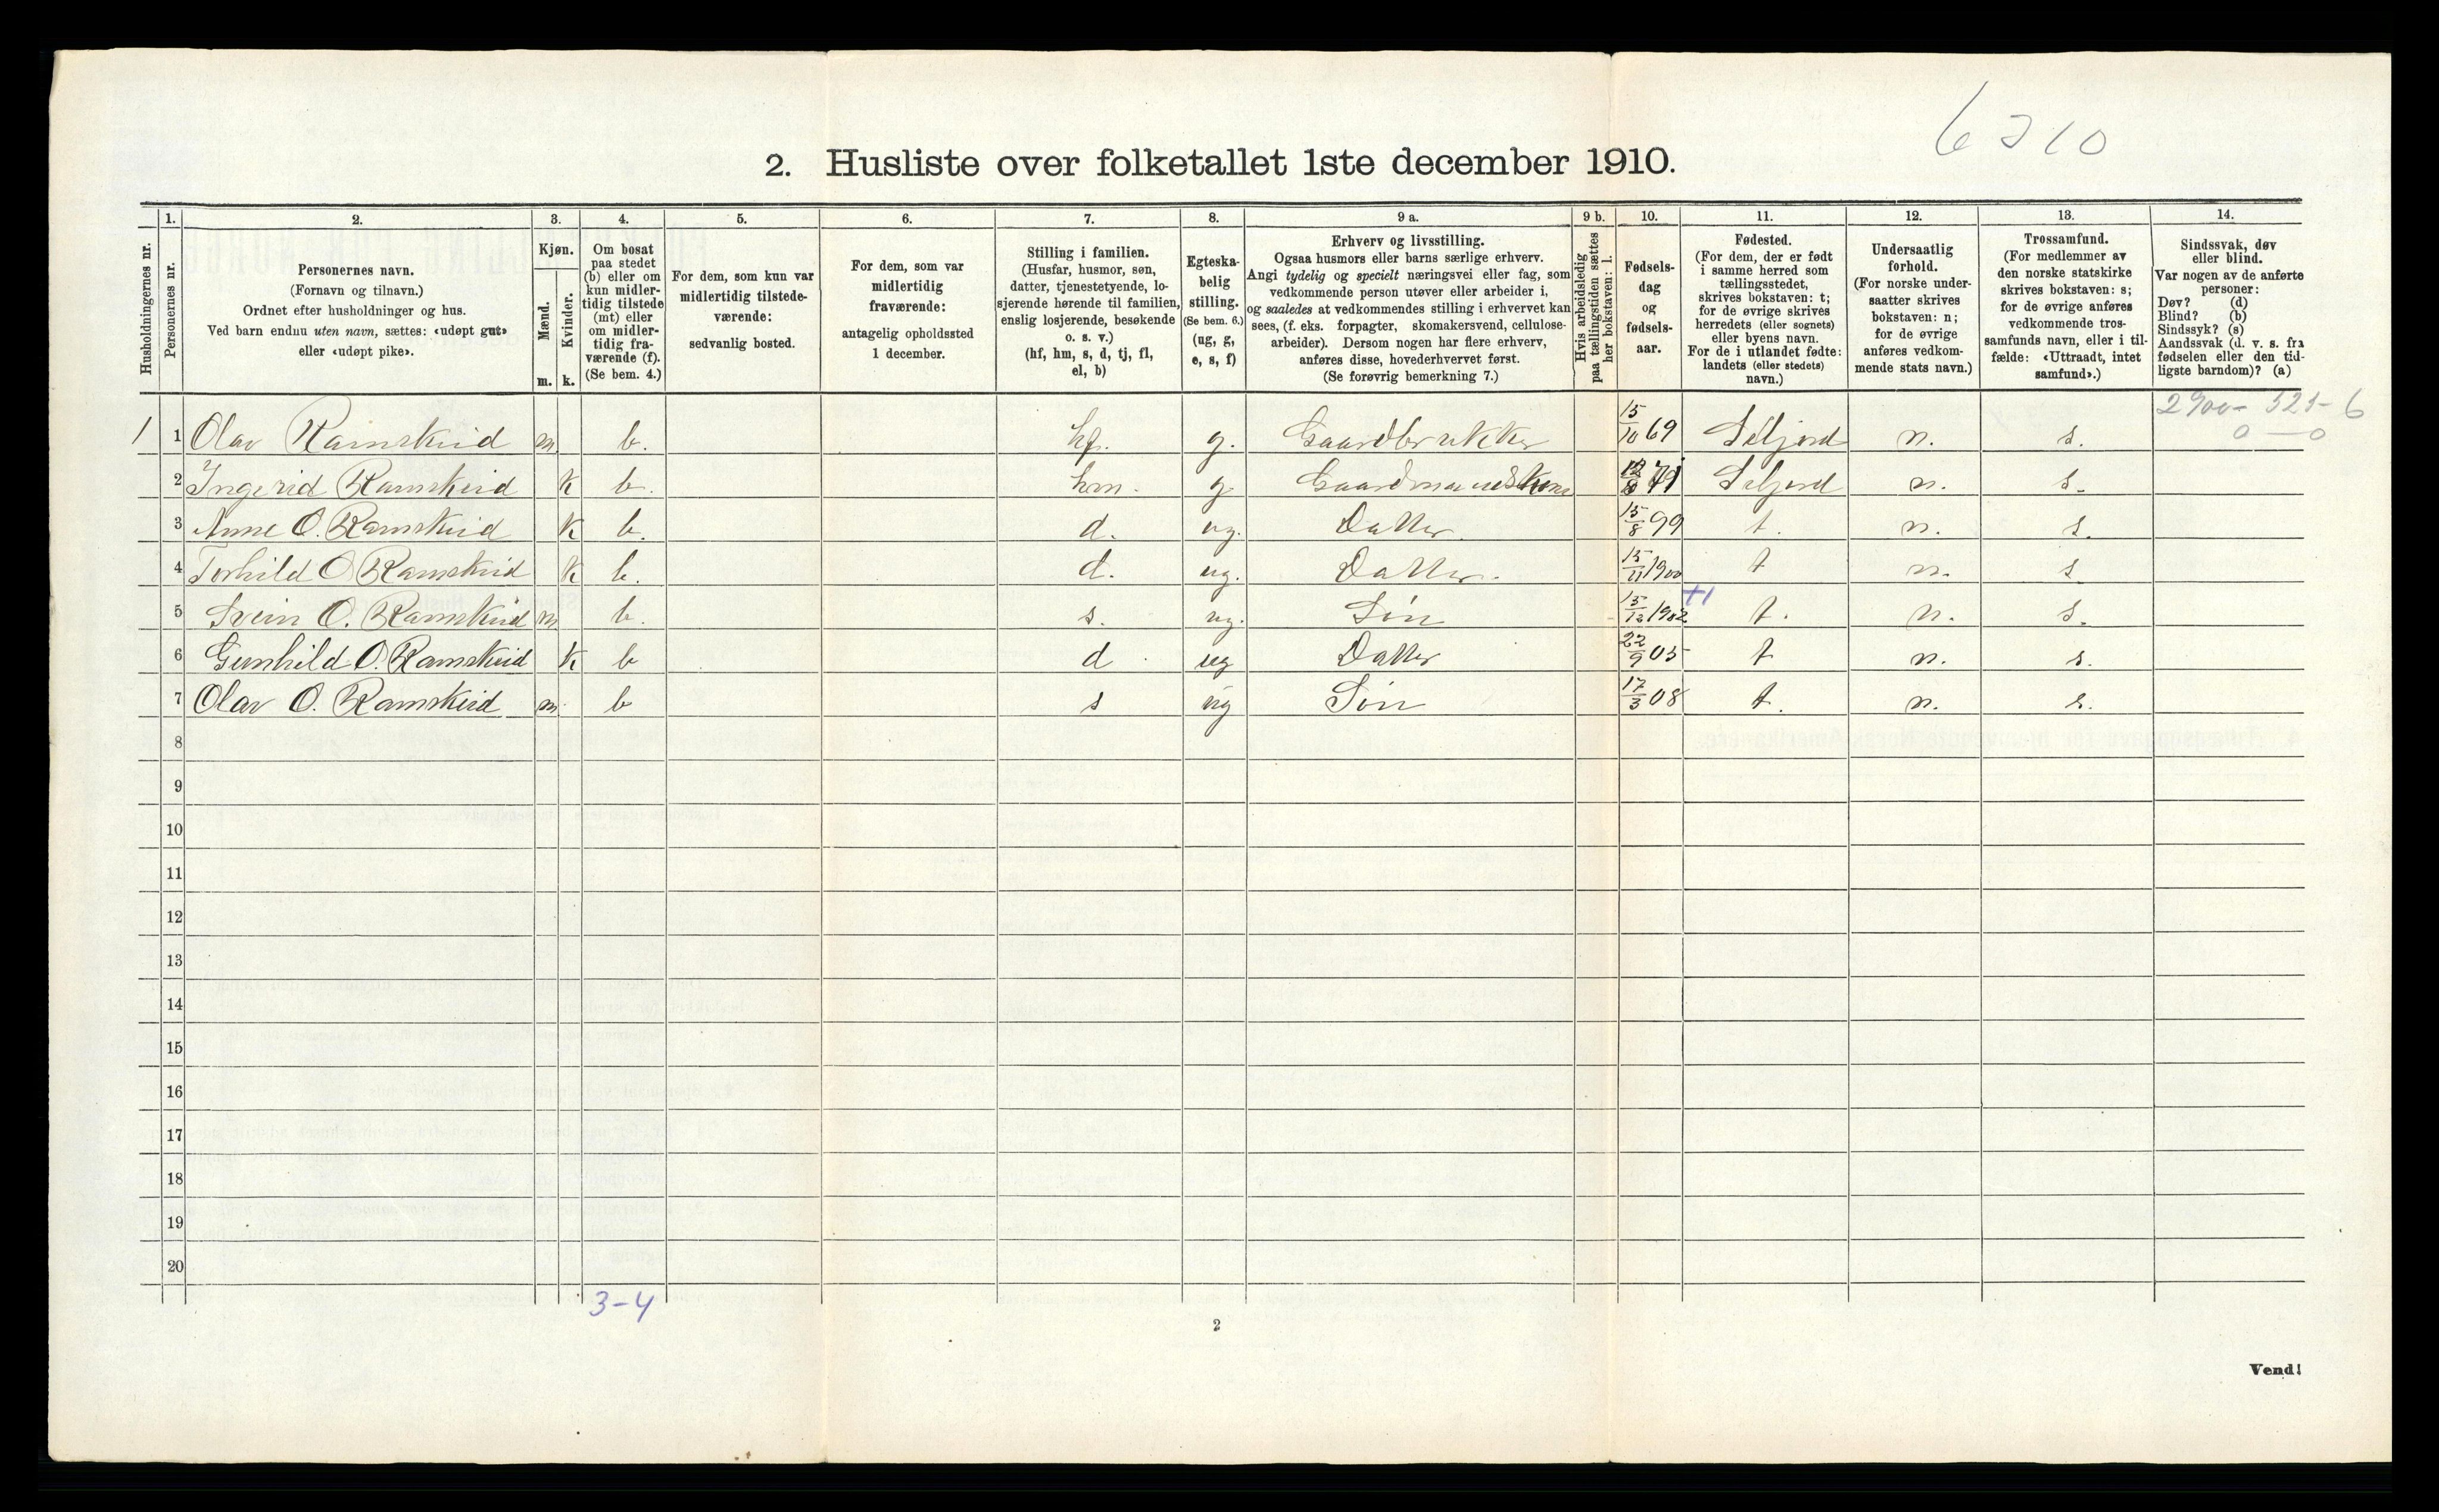 6210
2. Husliste over folketallet 1ste december 1910.
Husholdningernes nr.
1.
Personernes nr.
2.
Personernes navn.
(Fornavn og tilnavn.)
Ordnet efter husholdninger og hus.
Ved barn endnu uten navn, sættes: «udøpt gut»
eller «udøpt pike».
3.
Kjøn.
Mænd.
Kvinder.
m. k.
4.
Om bosat
paa stedet
(b) eller om
kun midler-
tidig tilstede
(mt) eller
om midler-
tidig fra-
værende (f).
(Se bem. 4.)
5.
For dem, som kun var
midlertidig tilstede-
værende:
sedvanlig bosted.
6.
For dem, som var
midlertidig
fraværende:
antagelig opholdssted
1 december.
7.
Stilling i familien.
(Husfar, husmor, søn,
datter, tjenestetyende, lo-
sjerende hørende til familien,
enslig losjerende, besøkende
o. s. v.)
(hf, hm, s, d, tj, fl,
el, b)
8.
Egteska-
belig
stilling.
(Se bem. 6.)
(ug, g,
e, s, f)
9 a.
Erhverv og livsstilling.
Ogsaa husmors eller barns særlige erhverv.
Angi tydelig og specielt næringsvei eller fag, som
vedkommende person utøver eller arbeider i,
og saaledes at vedkommendes stilling i erhvervet kan
sees, (f. eks. forpagter, skomakersvend, cellulose-
arbeider). Dersom nogen har flere erhverv,
anføres disse, hovederhvervet først.
(Se forøvrig bemerkning 7.)
9 b.
Hvis arbeidsledig
paa tællingstiden sættes
her bokstaven: l.
10.
Fødsels-
dag
og
fødsels-
aar.
11.
Fødested.
(For dem, der er født
i samme herred som
tællingsstedet,
skrives bokstaven: t;
for de øvrige skrives
herredets (eller sognets)
eller byens navn.
For de i utlandet fødte:
landets (eller stedets)
navn.)
12.
Undersaatlig
forhold.
(For norske under-
saatter skrives
bokstaven: n;
for de øvrige
anføres vedkom-
mende stats navn.)
13.
Trossamfund.
(For medlemmer av
den norske statskirke
skrives bokstaven: s;
for de øvrige anføres
vedkommende tros-
samfunds navn, eller i til-
fælde: «Uttraadt, intet
samfund».)
14.
Sindssvak, døv
eller blind.
Var nogen av de anførte
personer:
Døv? (d)
Blind? (b)
Sindssyk? (s)
Aandssvak (d. v. s. fra
fødselen eller den tid-
ligste barndom)? (a)
2900- 325- 6
0 — 0
1 1 Olav Ramskeid m. b. hf. g. Gaardbrukker 15/10 69 Seljord n. s.
2 Ingerid Ramskeid k b. hm. g Gaardmandskone Seljord n. s.
3 Anne O. Ramskeid k b. d. ug. Datter. 15/8 99 t. n. s.
4 Torhild O Ramskeid k b. d. ug. Datter. 15/11 1900 t n. s
5 Svein O. Ramskeid m b. s. ug. Søn 15/12 1902 t. n. s.
6 Gunhild O. Ramskeid k b d ug Datter 22/9 05 t n. s.
7 Olav O. Ramskeid m. b s ug Søn 17/3 08 t. n. s.
8
9
10
11
12
13
14
15
16
17
18
19
20
3-4
2
Vend!